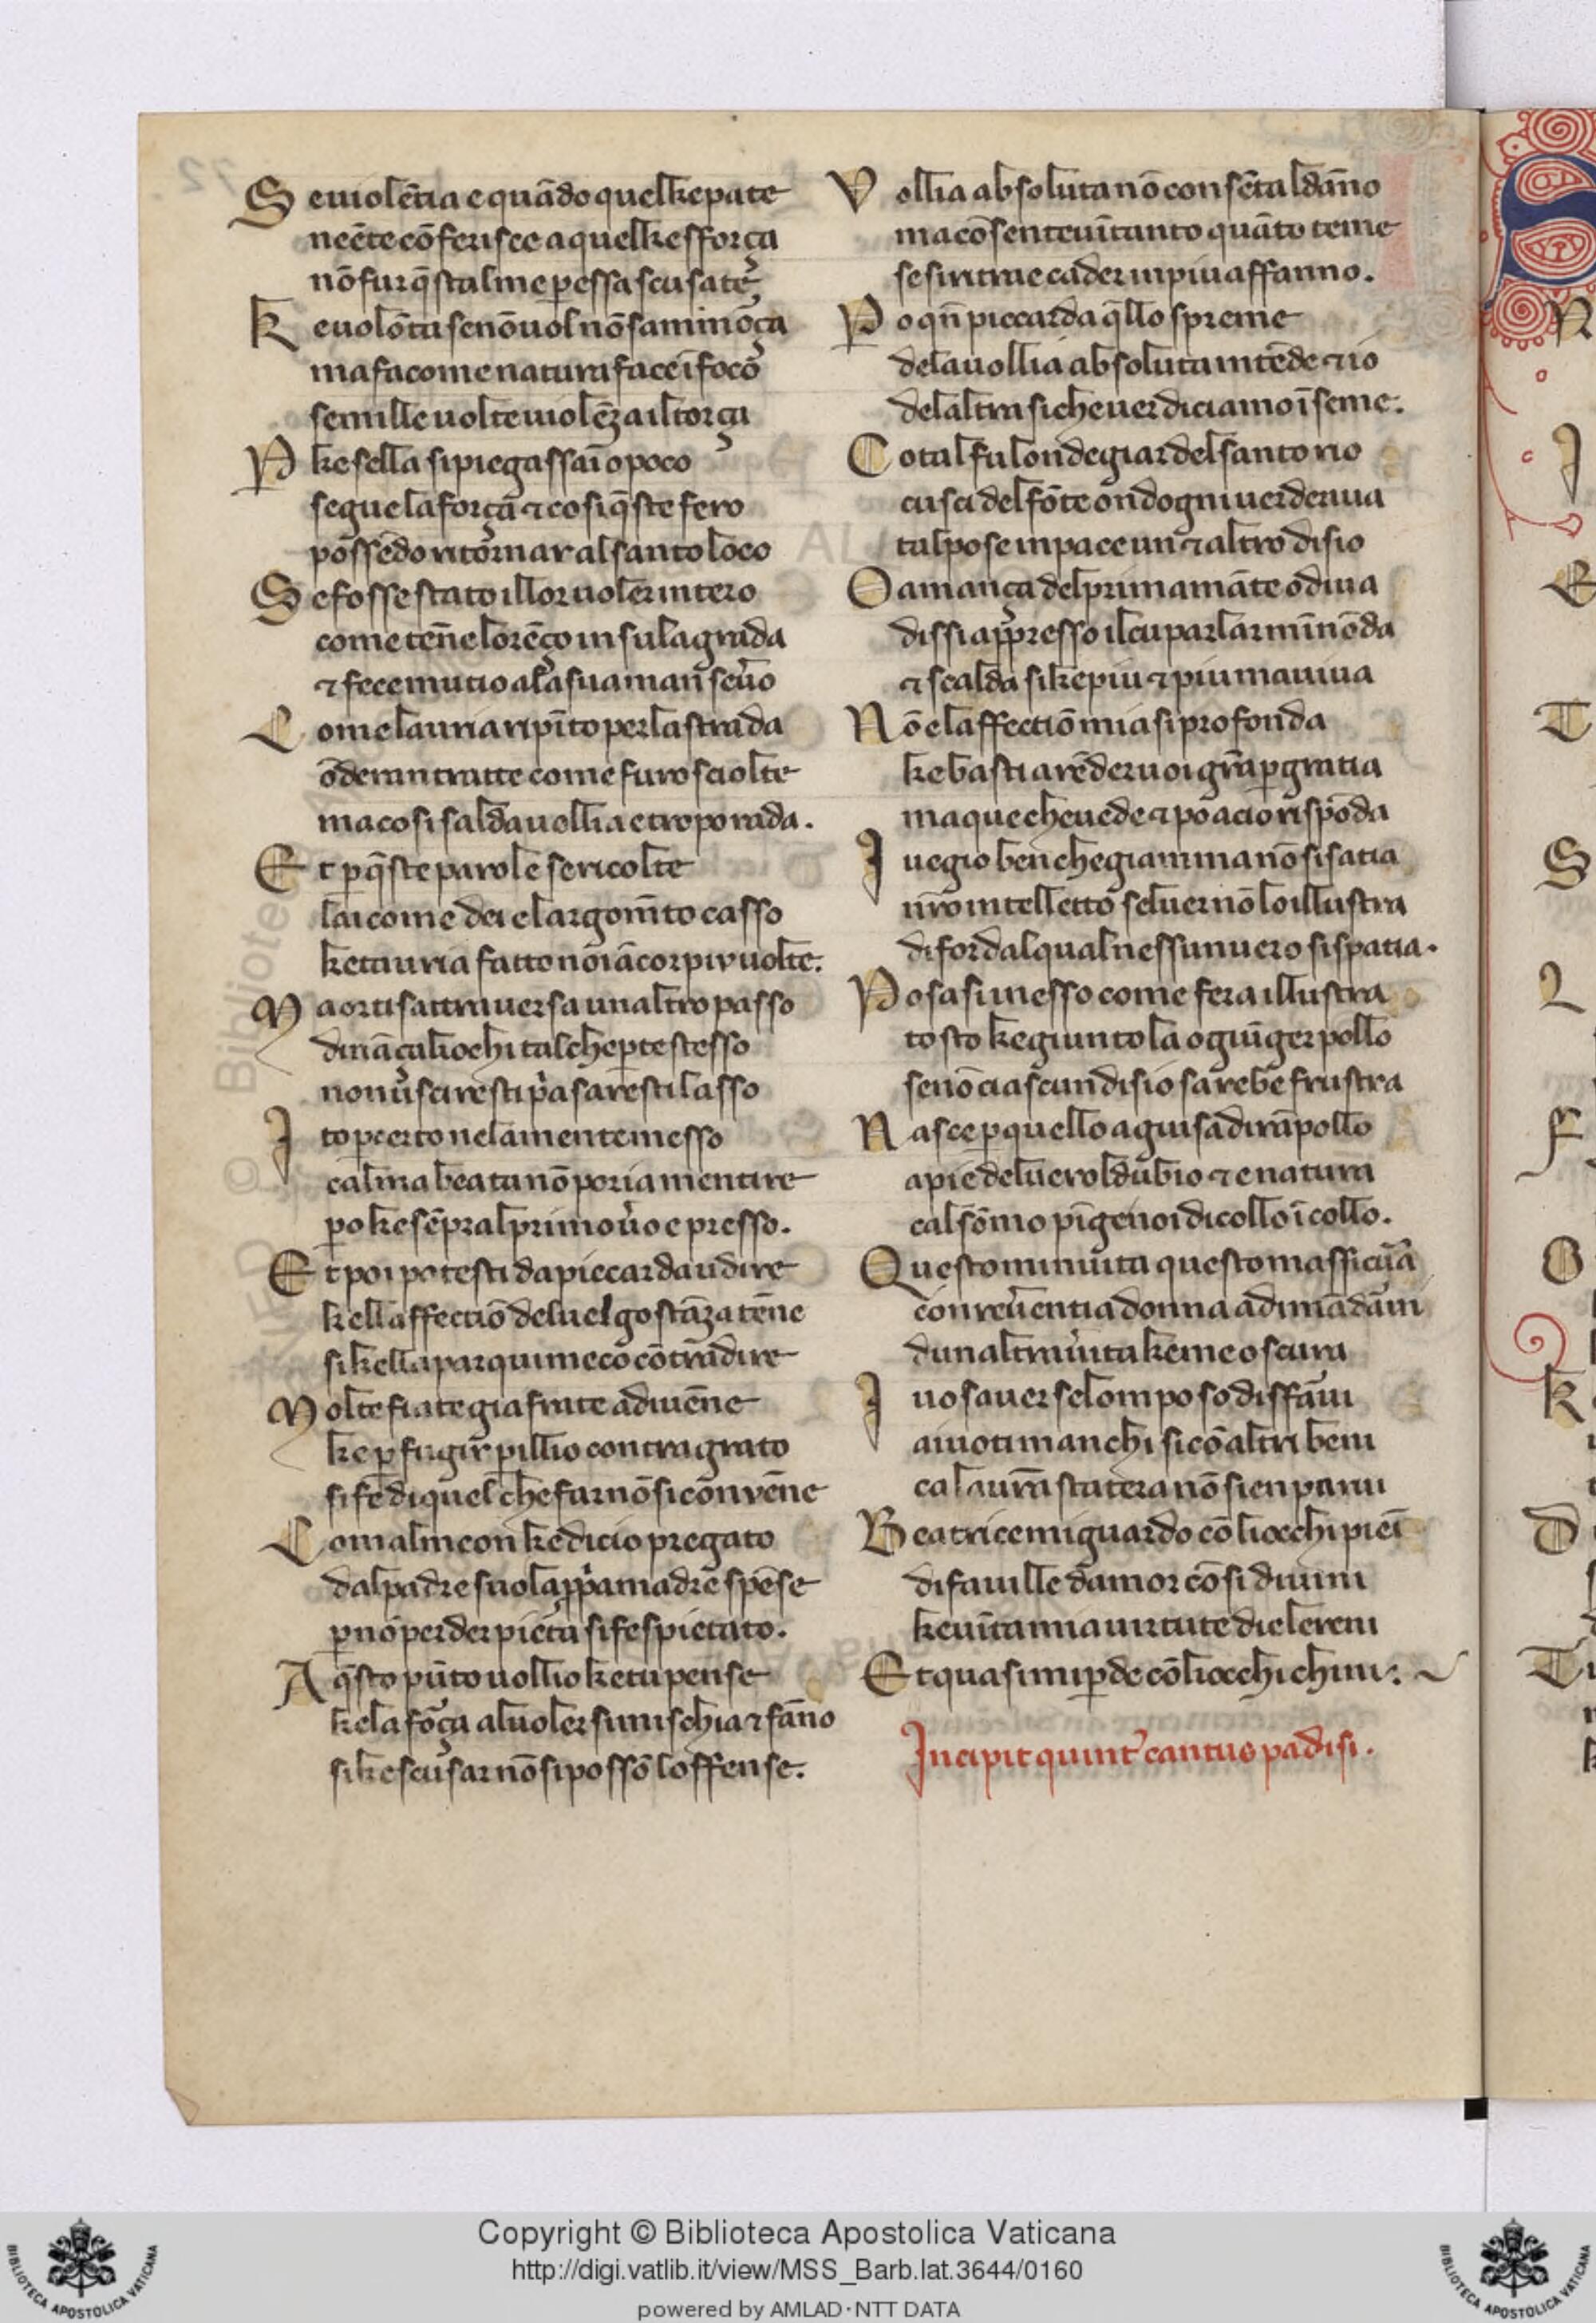 Se uiolẽtia e quãdo quel ke pate
neẽte cõferisce a quel ke sforça
nõ fur q̃st alme p essa scusate
Ke uolõta se nõ uol nõ saminõça
ma fa come natura face ĩ foco
se mille uolte uiolẽza il torça
P ke sella si piega ssai o poco
segue la força ⁊ cosi q̃ste fero
possẽdo ritornar al santo loco
Se fosse stato il lor uoler intero
come teñe lorẽço in su la grada
⁊ fece mutio ala sua man seu̾o
Come lauria ripĩto per la strada
õderan tratte come furo sciolte
ma cosi salda uollia e tropo rada.
Et p q̃ste parole se ricolte
lai come dei e largom̃to casso
ke tauria fatto noia ãcor piu uolte.
Ma or ti sattrauersa un altro passo
dinãçi aliochi tal che p te stesso
non usciresti p̾a saresti lasso
I to p certo nela mente messo
calma beata nõ poria mentire
po ke sẽpr al primo u̾o e presso.
Et poi potesti da piccarda udire
ke llaffectiõ del uel gostãza tẽne
si kella par qui meco cõtradire
Molte fiate gia frate adiuẽne
ke p fugir pillio contra grato
si fe di quel che far nõ si conuẽne
Com almeon ke di cio pregato
dal padre suo la pp̾a madre spẽse
p nõ perder pieta si fe spietato.
A q̃sto pũto uollio ke tu pense
ke la força al uoler si mischia ⁊ fãno
si ke scusar nõ si possõ loffense.
Vollia absoluta nõ consẽte al dãno
ma cõsenteui ĩ tanto quãto teme
se si ritrae cader in piu affanno.
Po qñ piccarda q̃llo spreme
dela uollia absoluta intẽde ⁊ io
de laltra si che uer diciamo ĩseme.
Cotal fu londegiar del santo rio
cusci del fõte ondogni uer deriua
tal pose in pace un ⁊ altro disio
O amança del prim amãte o diua
dissi appresso il cui parlar minõda
⁊ scalda si ke piu ⁊ piu mauiua
Nõ e laffectiõ mia si profonda
ke basti a rẽder uoi gr̃a p gratia
ma que che uede ⁊ po a cio rispõda
I uegio ben che giammai nõ si satia
n̄ro intelletto sel uer nõ lo illustra
di for dal qual nessun uero si spatia.
Posasi in esso come fera illustra
tosto ke giunto la ⁊ giũger pollo
se nõ ciascun disio sarebe frustra
Nasce p quello a guisa di rãpollo
a pie del uero l dubio ⁊ e natura
cal sõmo pĩge noi di collo ĩ collo.
Questo minuita questo massicu̾a
con reu̾entia donna a dimãdarui
dun altra uerita ke me oscura
I uo sauer se lom po sodisfarui
ai uoti manchi si cõ altri beni
cala ur̃a statera nõ sien parui
Beatrice mi guardo cõ li occhi pieĩ
di fauille damor cõ si diuini
ke uĩta mia uirtute die le reni
Et quasi mi p de cõ li occhi chini.
Incipit quint' cantus padisi.
Copyright © Biblioteca Apostolica Vaticana
http://digi.vatlib.it/view/MSS_Barb.lat.3644/0160
powered by AMLAD·NTT DATA